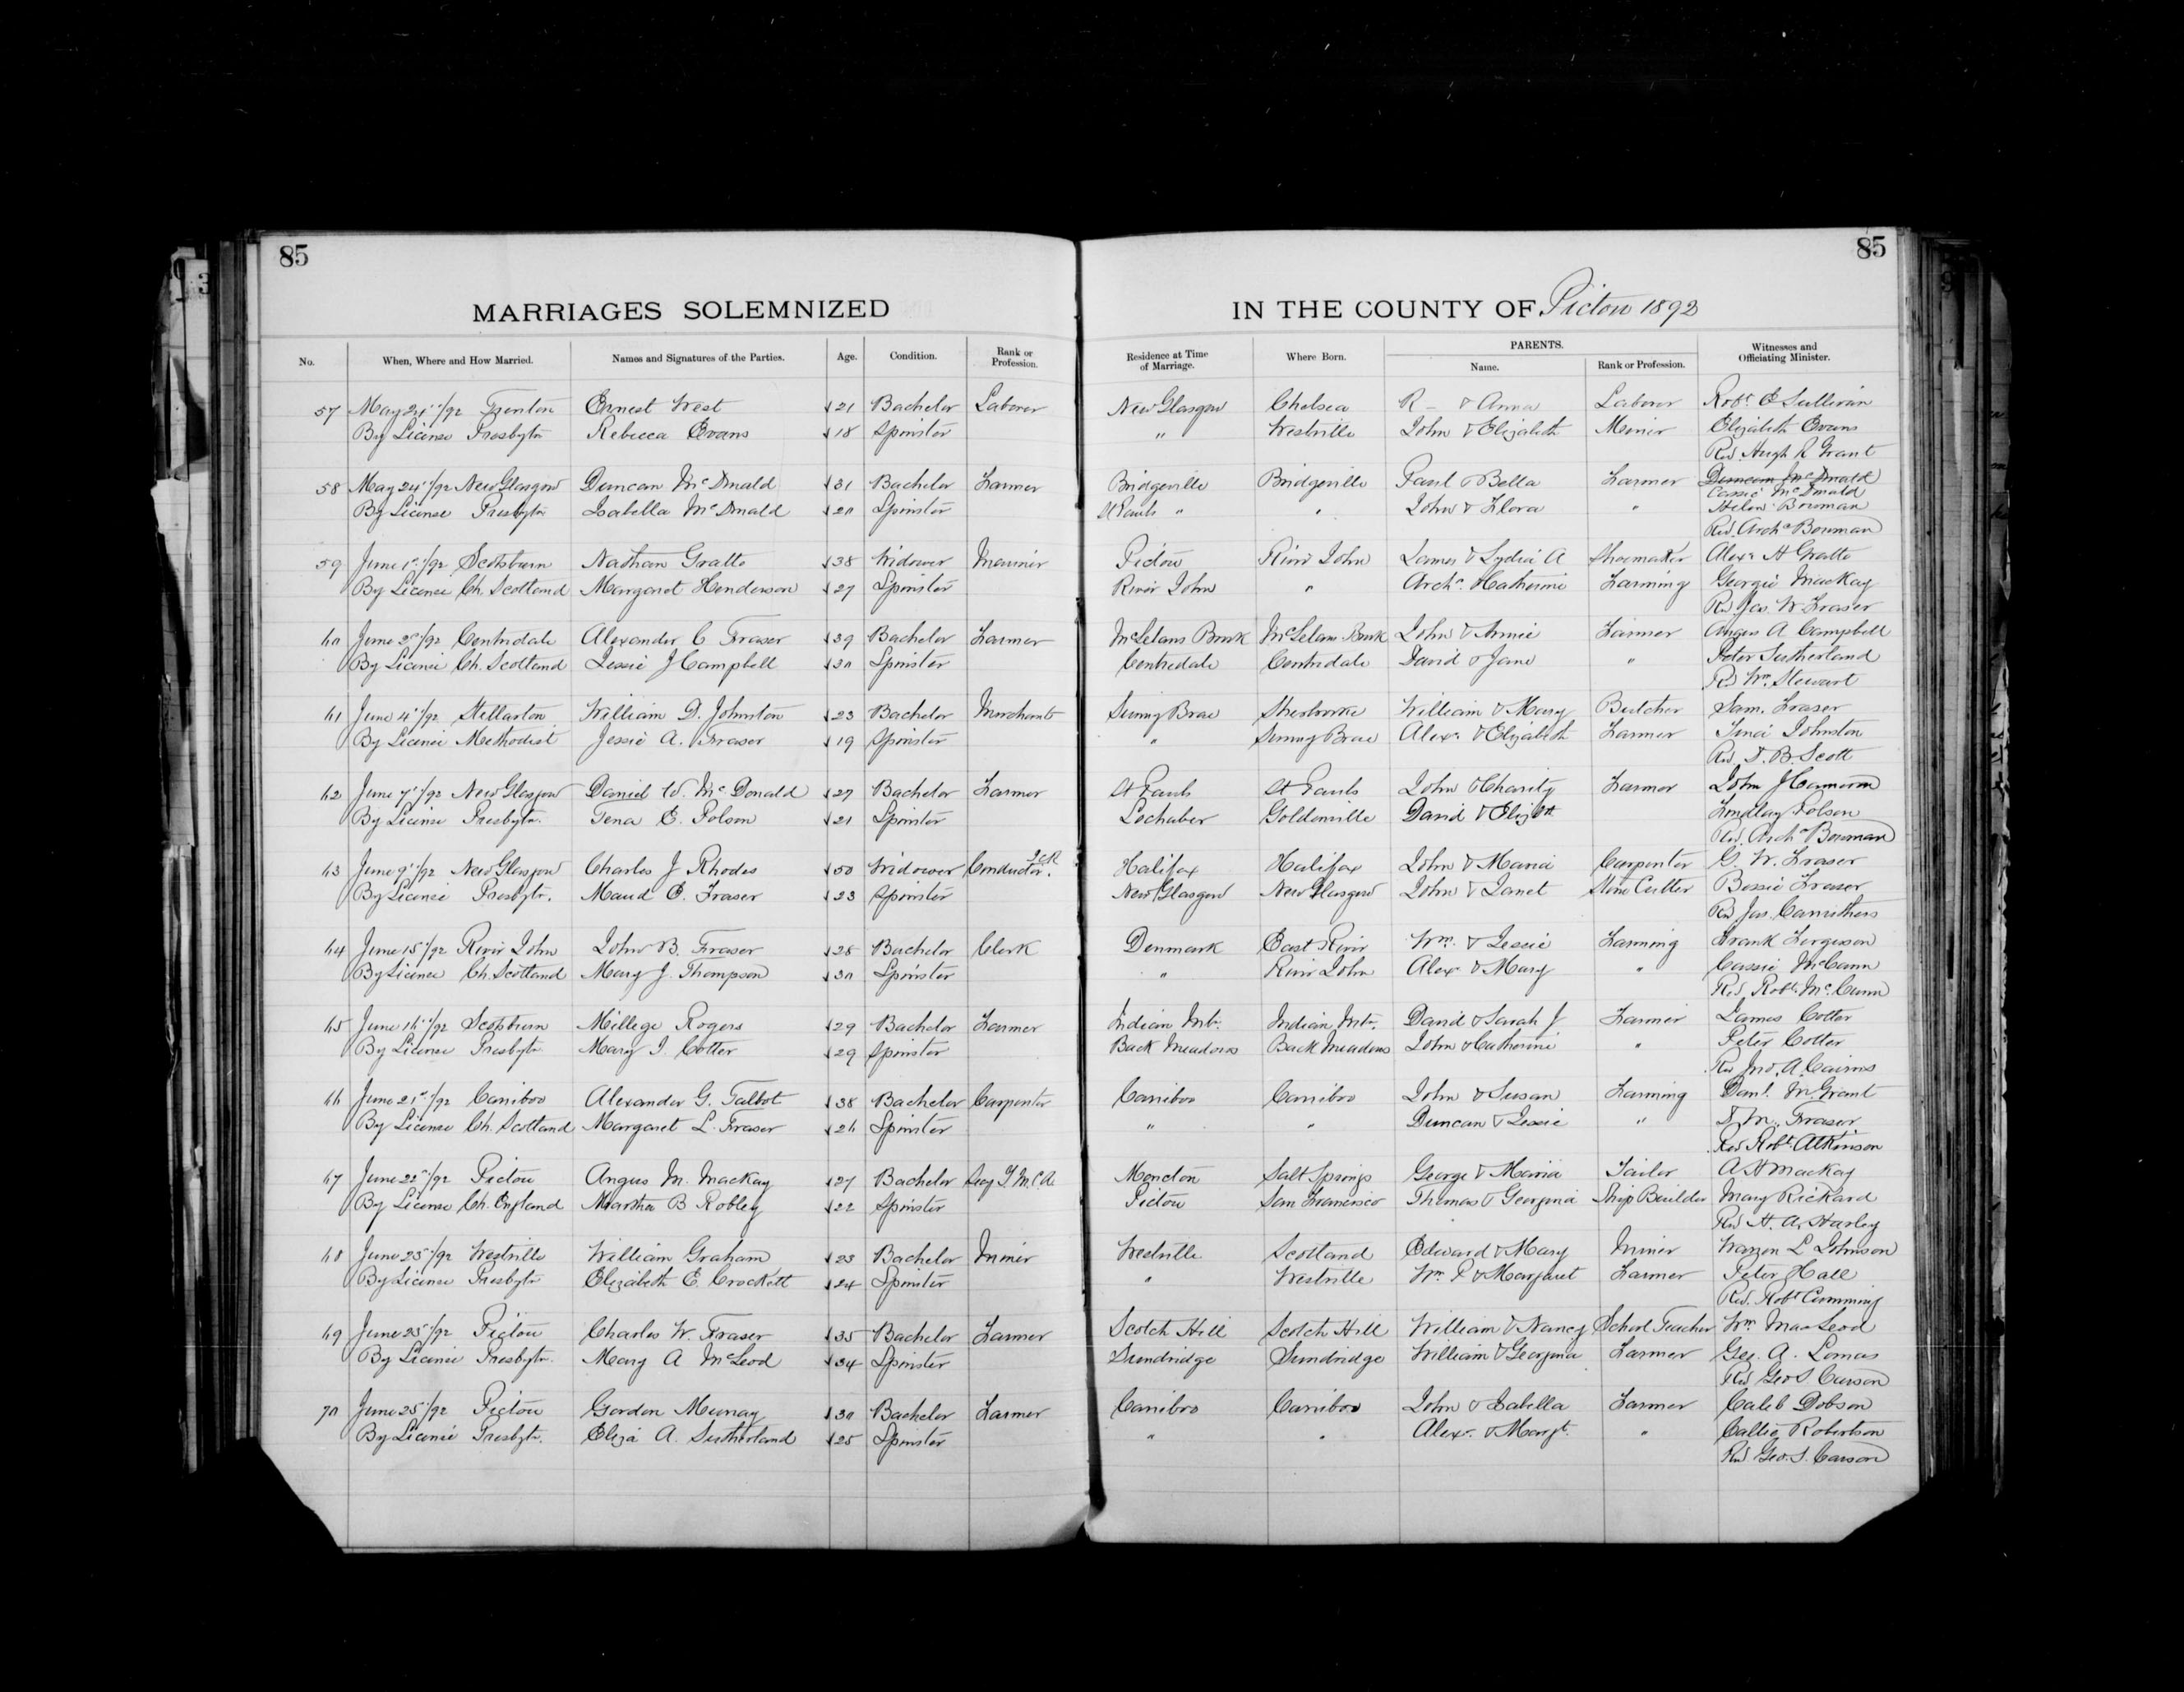 85
85
MARRIAGES SOLEMNIZED IN THE COUNTY OF Pictou 1892
No. When, Where and How Married. Names and Signatures of the Parties. Age. Condition. Rank or Profession. Residence at Time of Marriage. Where Born. PARENTS. Name. Rank or Profession. Witnesses and Officiating Minister.
57 May 24/92 Trenton Ernest West 21 Bachelor Laborer New Glasgow Chelsea R — & Anna Laborer Robt O Sullivan
By License Presbytn Rebecca Evans 18 Spinster " Westville John & Elizabeth Minir Elizabeth Evans
Rev. Hugh R Grant
58 May 24/92 New Glasgow Duncan McDonald 31 Bachelor Farmer Bridgeville Bridgeville Paul & Bella Farmer Duncan McDonald
Cassie McDonald
By License Presbytn Isabella McDonald 20 Spinster St Pauls " " John & Flora " Helen Bowman
Rev. Archd Bowman
59 June 1st/92 Scotsburn Nathan Gratto 38 Widower Mariner Pictou River John James & Lydia A Shoemaker Alexr H Gratto
By License Ch. Scotland Margaret Henderson 27 Spinster River John " Archd. Catherine Farming Georgie MacKay
Rev Jas. W. Fraser
60 June 2d/92 Centredale Alexander C Fraser 39 Bachelor Farmer McLelans Brook McLelans Brook John & Annie Farmer Angus A Campbell
By License Ch. Scotland Jessie J Campbell 30 Spinster Centredale Centredale David & Jane " Peter Sutherland
Rev Wm. Stewart
61 June 4/92 Stellarton William D. Johnston 23 Bachelor Merchant Sunny Brae Sherbrooke William & Mary Butcher Sam. Fraser
By License Methodist Jessie A. Fraser 19 Spinster " Sunny Brae Alexr. & Elizabeth Farmer Tina Johnston
Rev. D. B. Scott
62 June 7/92 New Glasgow Daniel W. McDonald 27 Bachelor Farmer St Pauls St Pauls John & Charity Farmer John J Cameron
By License Presbytn. Tena E. Polson 21 Spinster Lochaber Goldenville David & Elizbth Lindlay Polson
Rev. Archd Bowman
63 June 9/92 New Glasgow Charles J Rhodes 50 Widower Conductor I.C.R. Halifax Halifax John & Maria Carpenter G. W. Fraser
By License Presbytn. Maud E. Fraser 23 Spinster New Glasgow New Glasgow John & Janet Stone Cutter Bessie Fraser
Rev Jas. Carruthers
64 June 15/92 River John John B. Fraser 28 Bachelor Clerk Denmark East River Wm. & Jessie Farming Frank Fergisson
By License Ch. Scotland Mary J. Thompson 30 Spinster " River John Alexr & Mary " Cassie McCann
Rev. Robt. McCunn
65 June 16/92 Scotsburn Millege Rogers 29 Bachelor Farmer Indian Mtn. Indian Mtn. David & Sarah J Farmer James Cotter
By License Presbytn Mary I. Cotter 29 Spinster Back Meadows Back Meadows John & Catherine " Peter Cotter
Rev Jno. A. Cairns
66 June 21st/92 Carriboo Alexander G. Talbot 38 Bachelor Carpenter Carriboo Carriboo John & Susan Farming Danl. M. Grant
By License Ch. Scotland Margaret L. Fraser 26 Spinster " " Duncan & Jessie " D. M. Fraser
Rev Robt. Atkinson
67 June 22d/92 Pictou Angus M. MacKay 27 Bachelor Secy Y.M.C.A. Moncton Salt Springs George & Maria Tailor A H MacKay
By License Ch. England Martha B Robley 22 Spinster Pictou San Francisco Thomas & Georgina Ship Builder Mary Rickard
Rev H. A. Harley
68 June 25/92 Westville William Graham 23 Bachelor Miner Westville Scotland Edward & Mary Miner Warren L Johnson
By License Presbytn Elizabeth E. Crockett 24 Spinster " Westville Wm. P & Margaret Farmer Peter Hall
Rev. Robt Cumming
69 June 25/92 Pictou Charles W. Fraser 35 Bachelor Farmer Scotch Hill Scotch Hill William & Nancy School Teacher Wm MacLeod
By License Presbytn. Mary A McLeod 34 Spinster Sundridge Sundridge William & Georgina Farmer Geo. A. Lomas
Rev Geo S. Carson
70 June 25/92 Pictou Gordon Murray 30 Bachelor Farmer Carriboo Carriboo John & Isabella Farmer Caleb Dobson
By License Presbytn. Eliza A. Sutherland 25 Spinster " " Alexr. & Margt. " Callie Robertson
Rev. Geo. S. Carson